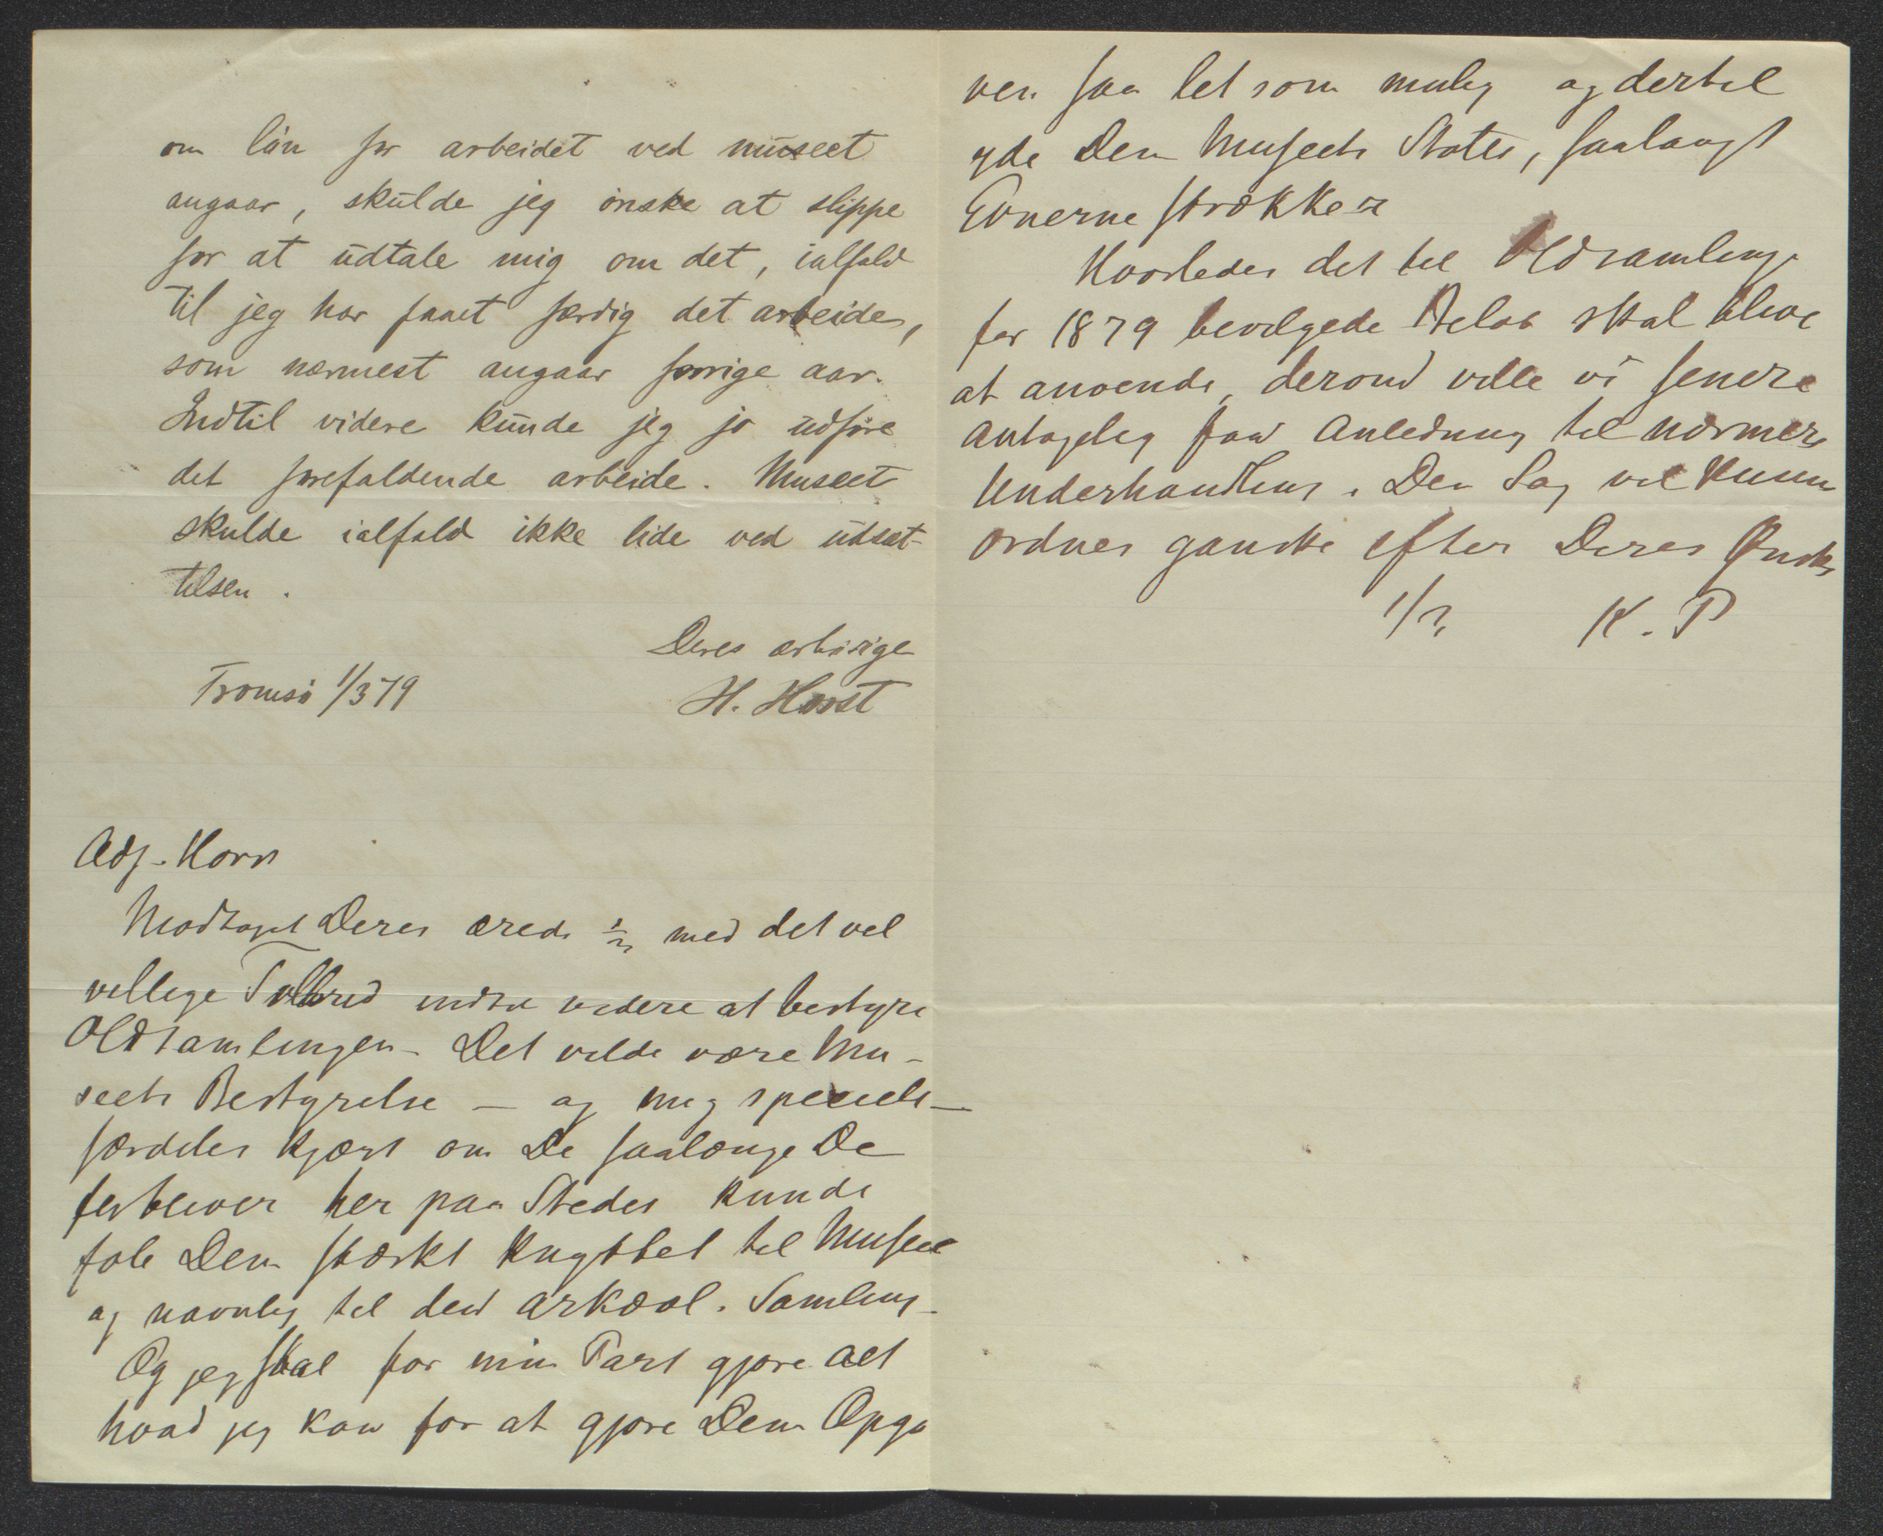 om lön for arbeidet ved museet
angaar, skulde jeg önske at slippe
for at udtale mig om det, ialfald
til jeg har faaet færdig det arbeide,
som nærmest angaar forrige aar.
Indtil videre kunde jeg jo udföre
det forefaldende arbeide. Museet
skulde ialfald ikke lide ved udsæt-
telsen.
Deres ærbödige
Tromsö 1/3 79
H. Horst
Adj. Horst
Modtaget Deres ærede med det vel
villige Tilbud indtil videre at bestyre
Oldsamlingen. Det vilde være Mu-
seets Bestyrelse — og mig specielt —
særdeles kjært om De saalænge De
forbliver her paa Stedet kunde
føle Dem stærkt knyttet til Museet
og navnlig til den arkæol. Samling.
Og jeg skal for min Part gjøre alt
hvad jeg kan for at gjøre Dem Opga
ven saa let som mulig og dertil
yde Dem Museets Støtte, saalangt
Evnerne strækker
Hvorledes det til Oldsamling
for 1879 bevilgede Beløb skal blive
at anvende, derom ville vi senere
antagelig faa Anledning til nærmere
Underhandling. Den Sag vil kunne
ordnes ganske efter Deres Ønske
1/3 K. P